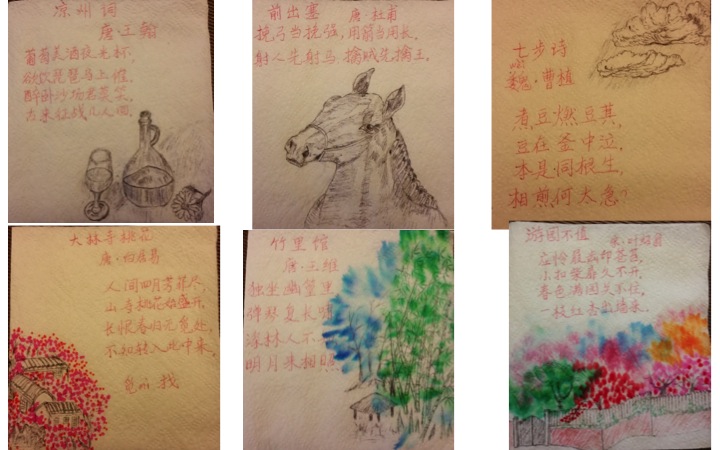 凉州词
唐·王翰
葡萄美酒夜光杯,
欲饮琵琶马上催。
醉卧沙场君莫笑,
古来征战几人回。
前出塞 唐·杜甫
挽弓当挽强,用箭当用长。
射人先射马,擒贼先擒王。
七步诗
魏·曹植
煮豆燃豆萁,
豆在釜中泣。
本是同根生,
相煎何太急?
大林寺桃花
唐·白居易
人间四月芳菲尽,
山寺桃花始盛开。
长恨春归无觅处,
不知转入此中来。
觅mì 找
竹里馆
唐·王维
独坐幽篁里
弹琴复长啸
深林人不
明月来相照
游园不值
宋·叶绍翁
应怜屐齿印苍苔,
小扣柴扉久不开。
春色满园关不住,
一枝红杏出墙来。